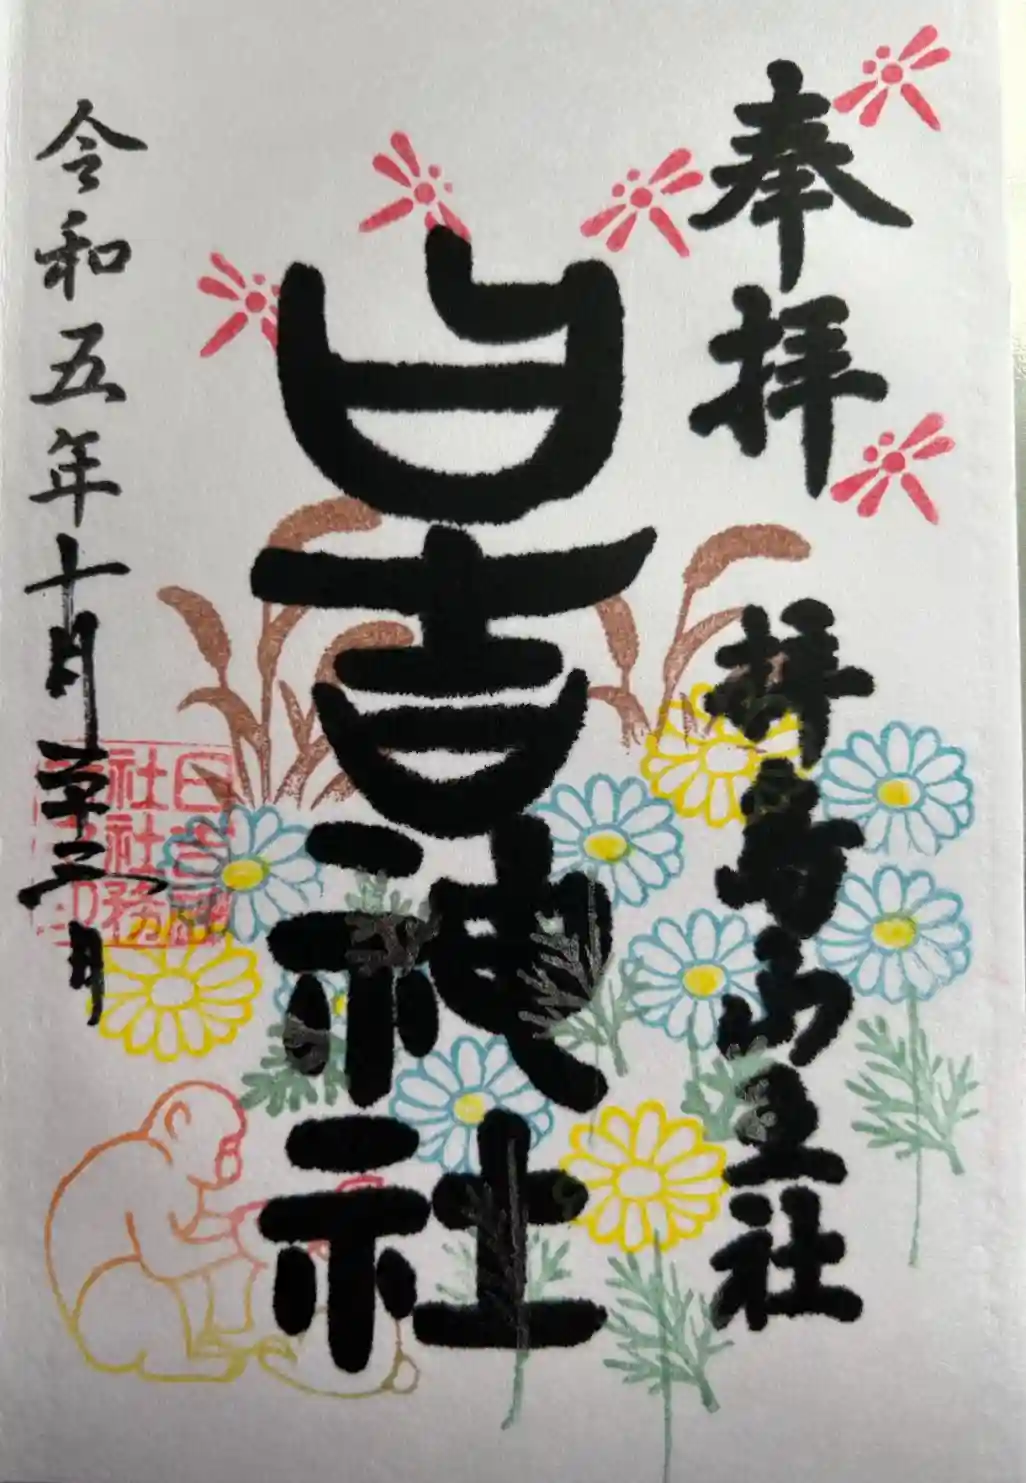 奉拝
拝島山王社
日吉神社
令和五年十月
日吉神
社社務